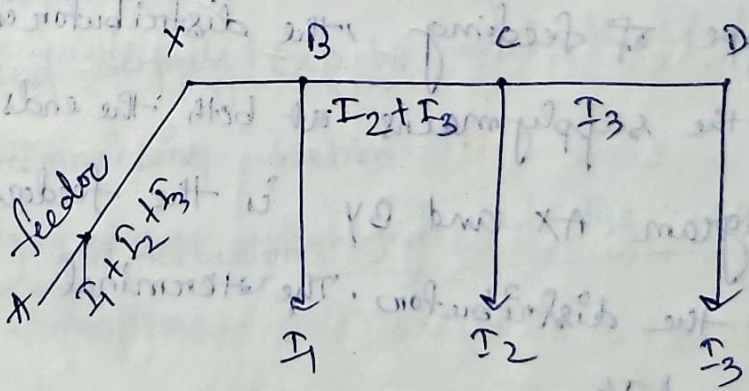 X B C D
I2+I3 I3
feedor
I1+I2+I3
A
I1 I2 I3